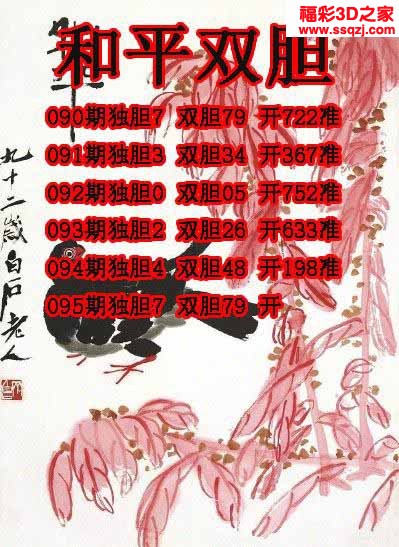 福彩3D之家
www.ssqzj.com
和平双胆
090期独胆7 双胆79 开722准
091期独胆3 双胆34 开367准
092期独胆0 双胆05 开752准
093期独胆2 双胆26 开633准
094期独胆4 双胆48 开198准
095期独胆7 双胆79 开
九十二岁白石老人